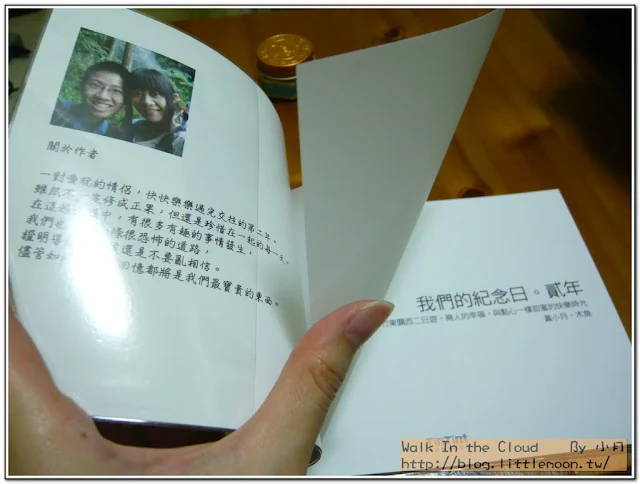 關於作者
一對愛玩的情侶，快快樂樂過完交往的第二年。
雖然不 修成正果，但還是珍惜在一起的每一天、
在這 中，有很多有趣的事情發生，
我們 條很恐怖的道路，
證明導 還是不要亂相信。
儘管如 回憶都將是我們最寶貴的東西。
我們的紀念日。貳年
竹東關西二日遊。兩人的幸福，與點心一樣甜蜜的快樂時光
黃小月。木魚
Walk In the Cloud By 小月
http://blog.littlemoon.tw/